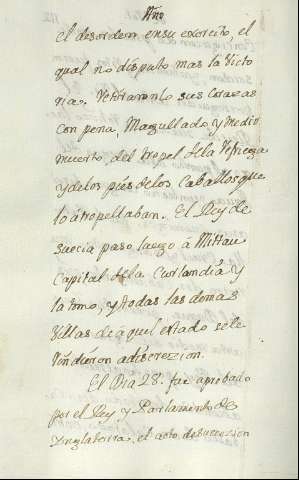 Año
el desorden en su exercito, el
qual no disputo mas la Victo
ria. Retiraronlo sus Corazas
con pena, Magullado y medio
muerto, del tropel de la Refriega
y de los piés de los Caballos que
lo atropellaban. El Rey de
suecia paso luego á Mittau
Capital de la Curlandia y
la tomo, y todas las demas
Villas de aquel estado se le
rindieron a discrezion.
El Dia 28. fue aprobado
por el Rey y Parlamento de
Ynglaterra, el acto de succession